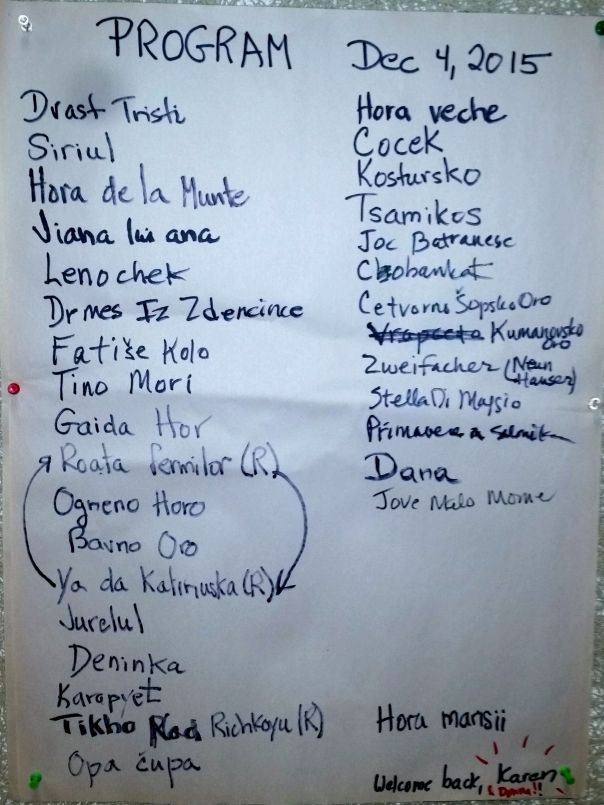 PROGRAM
Drast Tristi
Siriul
Hora de la Munte
Jiana lui ana
Lenochek
Drmes Iz Zdencince
Fatiše Kolo
Tino Mori
Gaida Hor
Roata femnilor (R)
Ogneno Horo
Bavno Oro
Ya da Kalinuska (R)
Jurelul
Deninka
Karapyet
Tikho Nad Richkoyu (R)
Opa čupa
Dec 4, 2015
Hora veche
Cocek
Kostursko
Tsamikos
Joc Batranesc
Chobankat
Cetvorno Šopsko Oro
Vrapceto Kumanovsko
oro
Zweifacher (Neun
Hauser)
Stella Di Maggio
Primavera
Dana
Jove Malo Mome
Hora mansii
Welcome back, Karen
& Donna!!